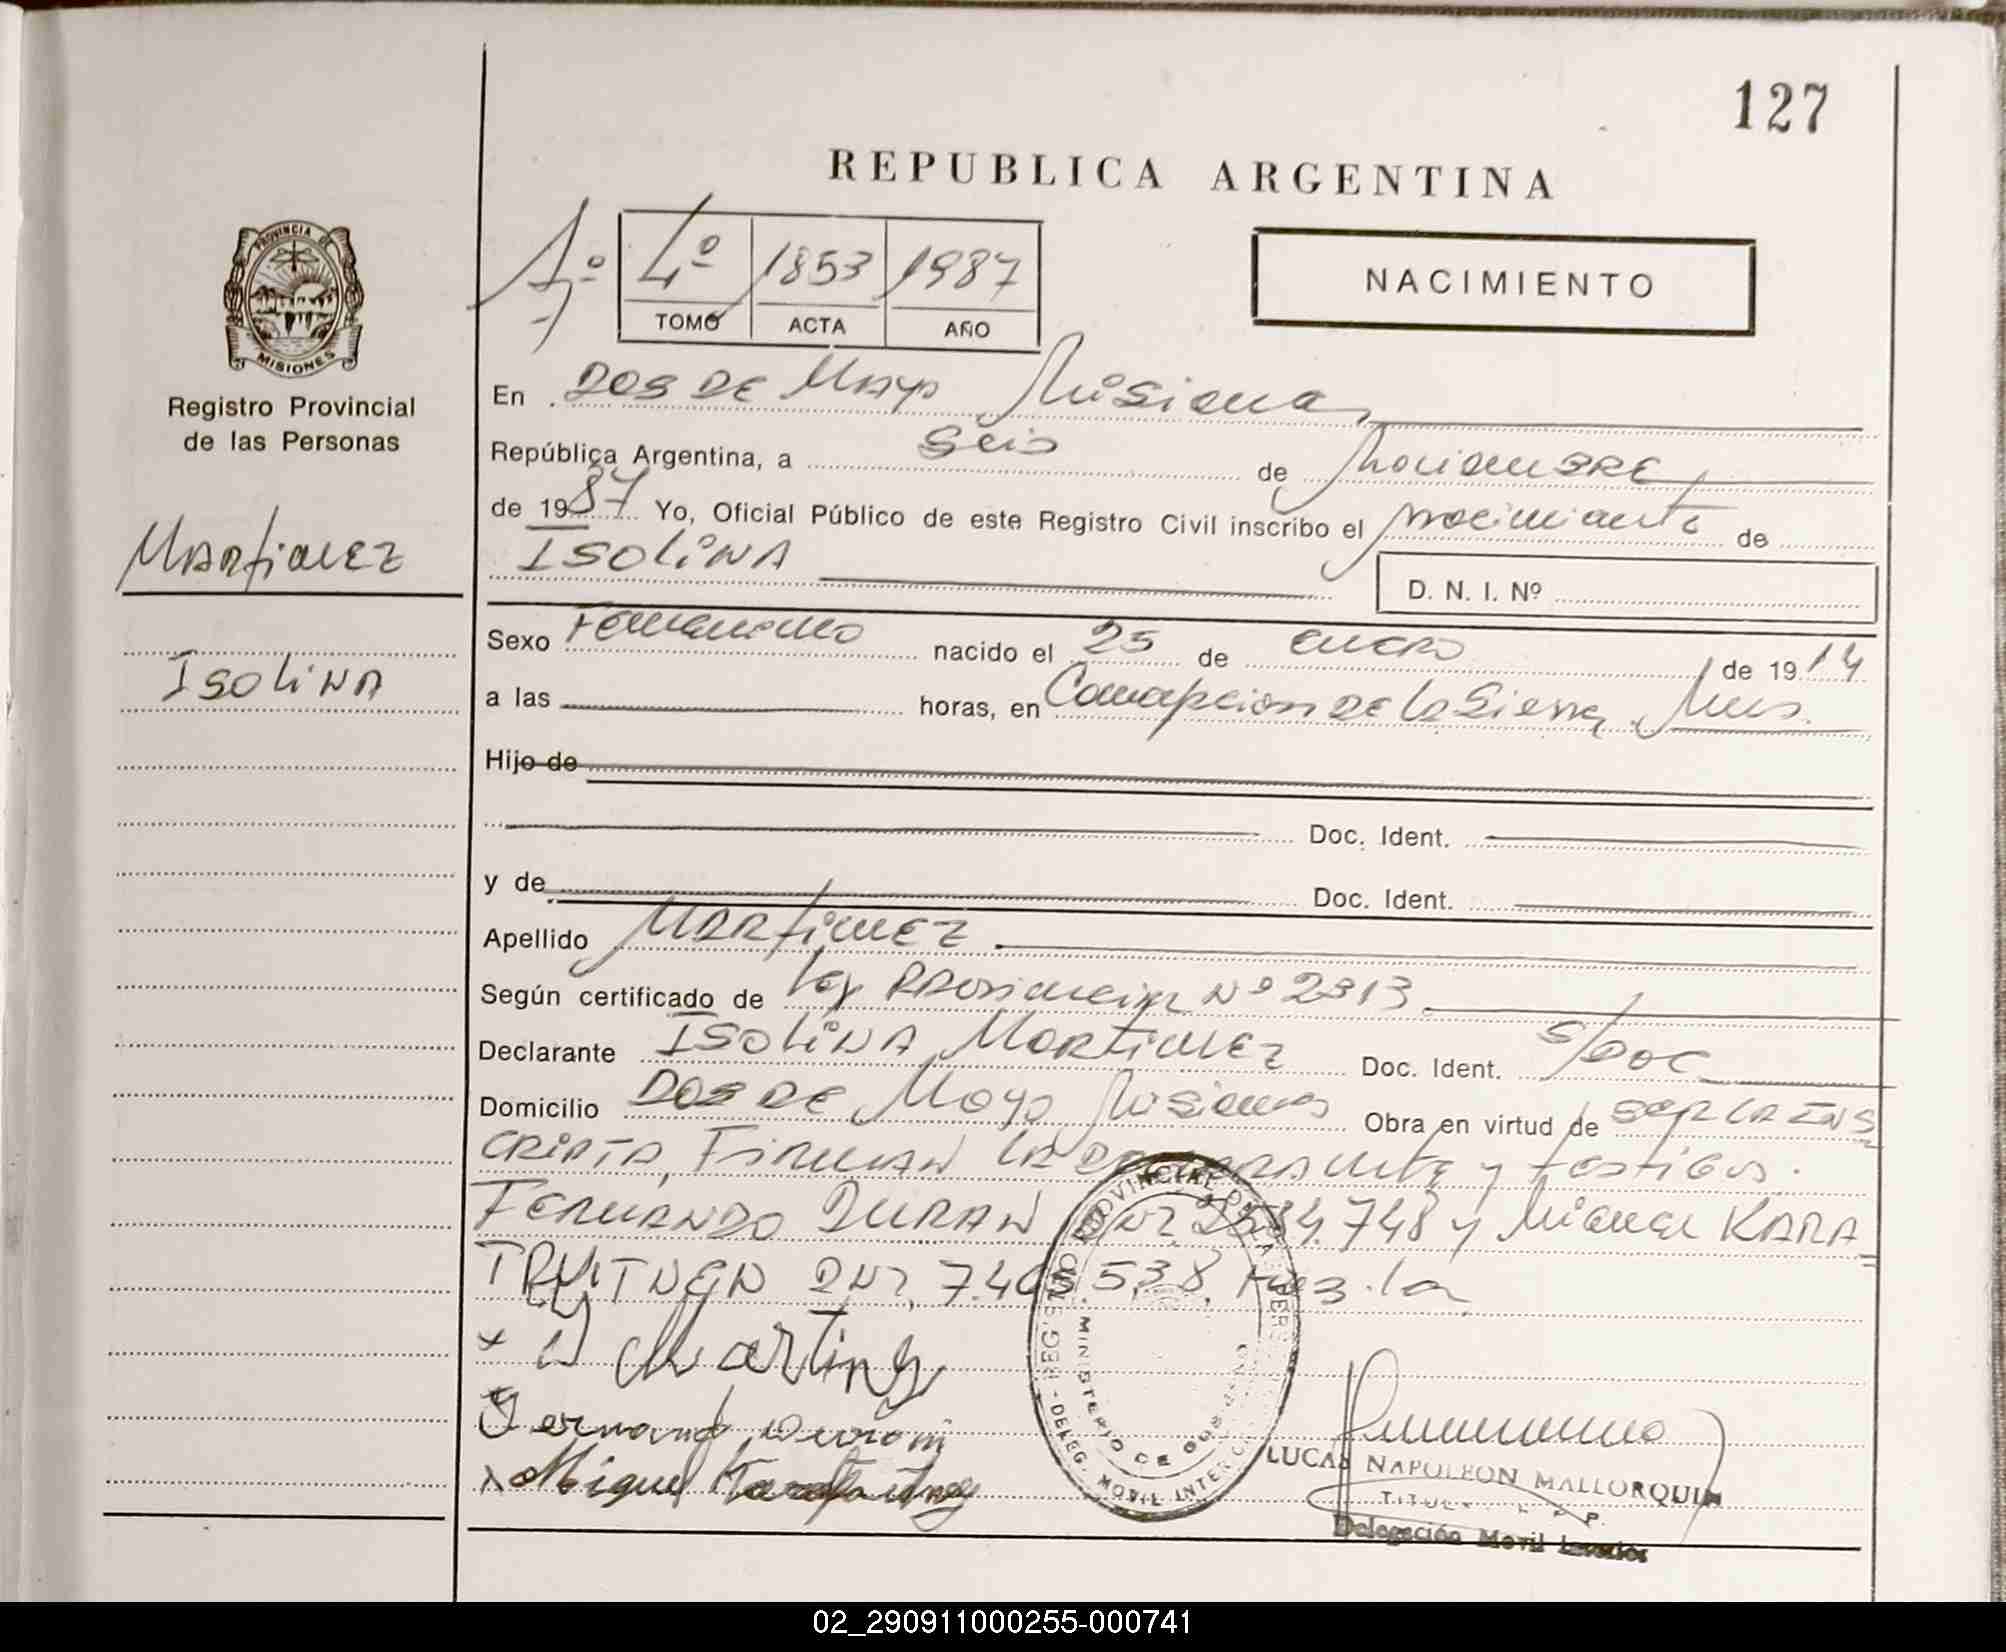 127
REPUBLICA ARGENTINA
4º 1853 1987
TOMO ACTA AÑO
NACIMIENTO
PROVINCIA DE
MISIONES
Registro Provincial
de las Personas
MARTINEZ
ISOLINA
En DOS DE MAYO Misiones
República Argentina, a Seis de NoviemBRE
de 1987 Yo, Oficial Público de este Registro Civil inscribo el nacimiento de
ISOLINA
D. N. I. Nº
Sexo Femenino nacido el 25 de enero de 1914
a las horas, en Concepcion DE La Sierra Mnes.
Hijo de
Doc. Ident.
y de Doc. Ident.
Apellido MARTINEZ
Según certificado de Ley PROVINCIAL Nº 2313
Declarante ISOLINA MARTINEZ Doc. Ident. S/DOC
Domicilio DOS DE Mayo Misiones Obra en virtud de SER LA INS
CRIPTA, FIRMAN LA y testigos.
FERNANDO DURAN 748 y Miguel KARA
7.4 538
Martinez
Fernando Duran
Miguel
LUCAS NAPOLEON MALLORQUIN
TITULAR
Delegación Movil
MINISTERIO DE GOBIERNO
DELEG. MOVIL
02_290911000255-000741